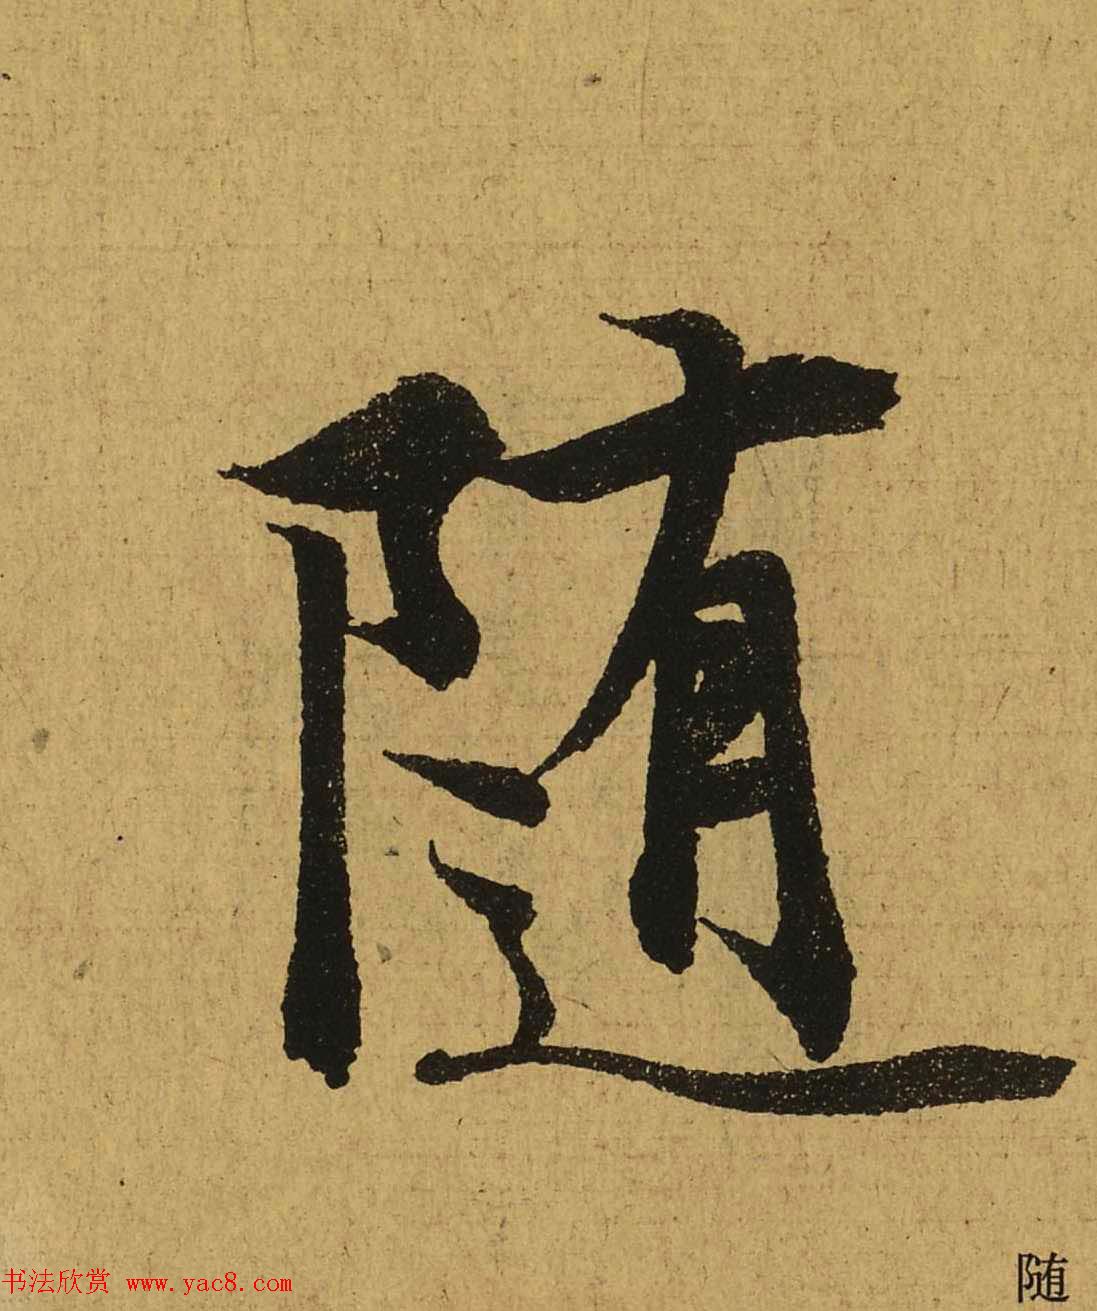 随
随
书法欣赏 www.yac8.com